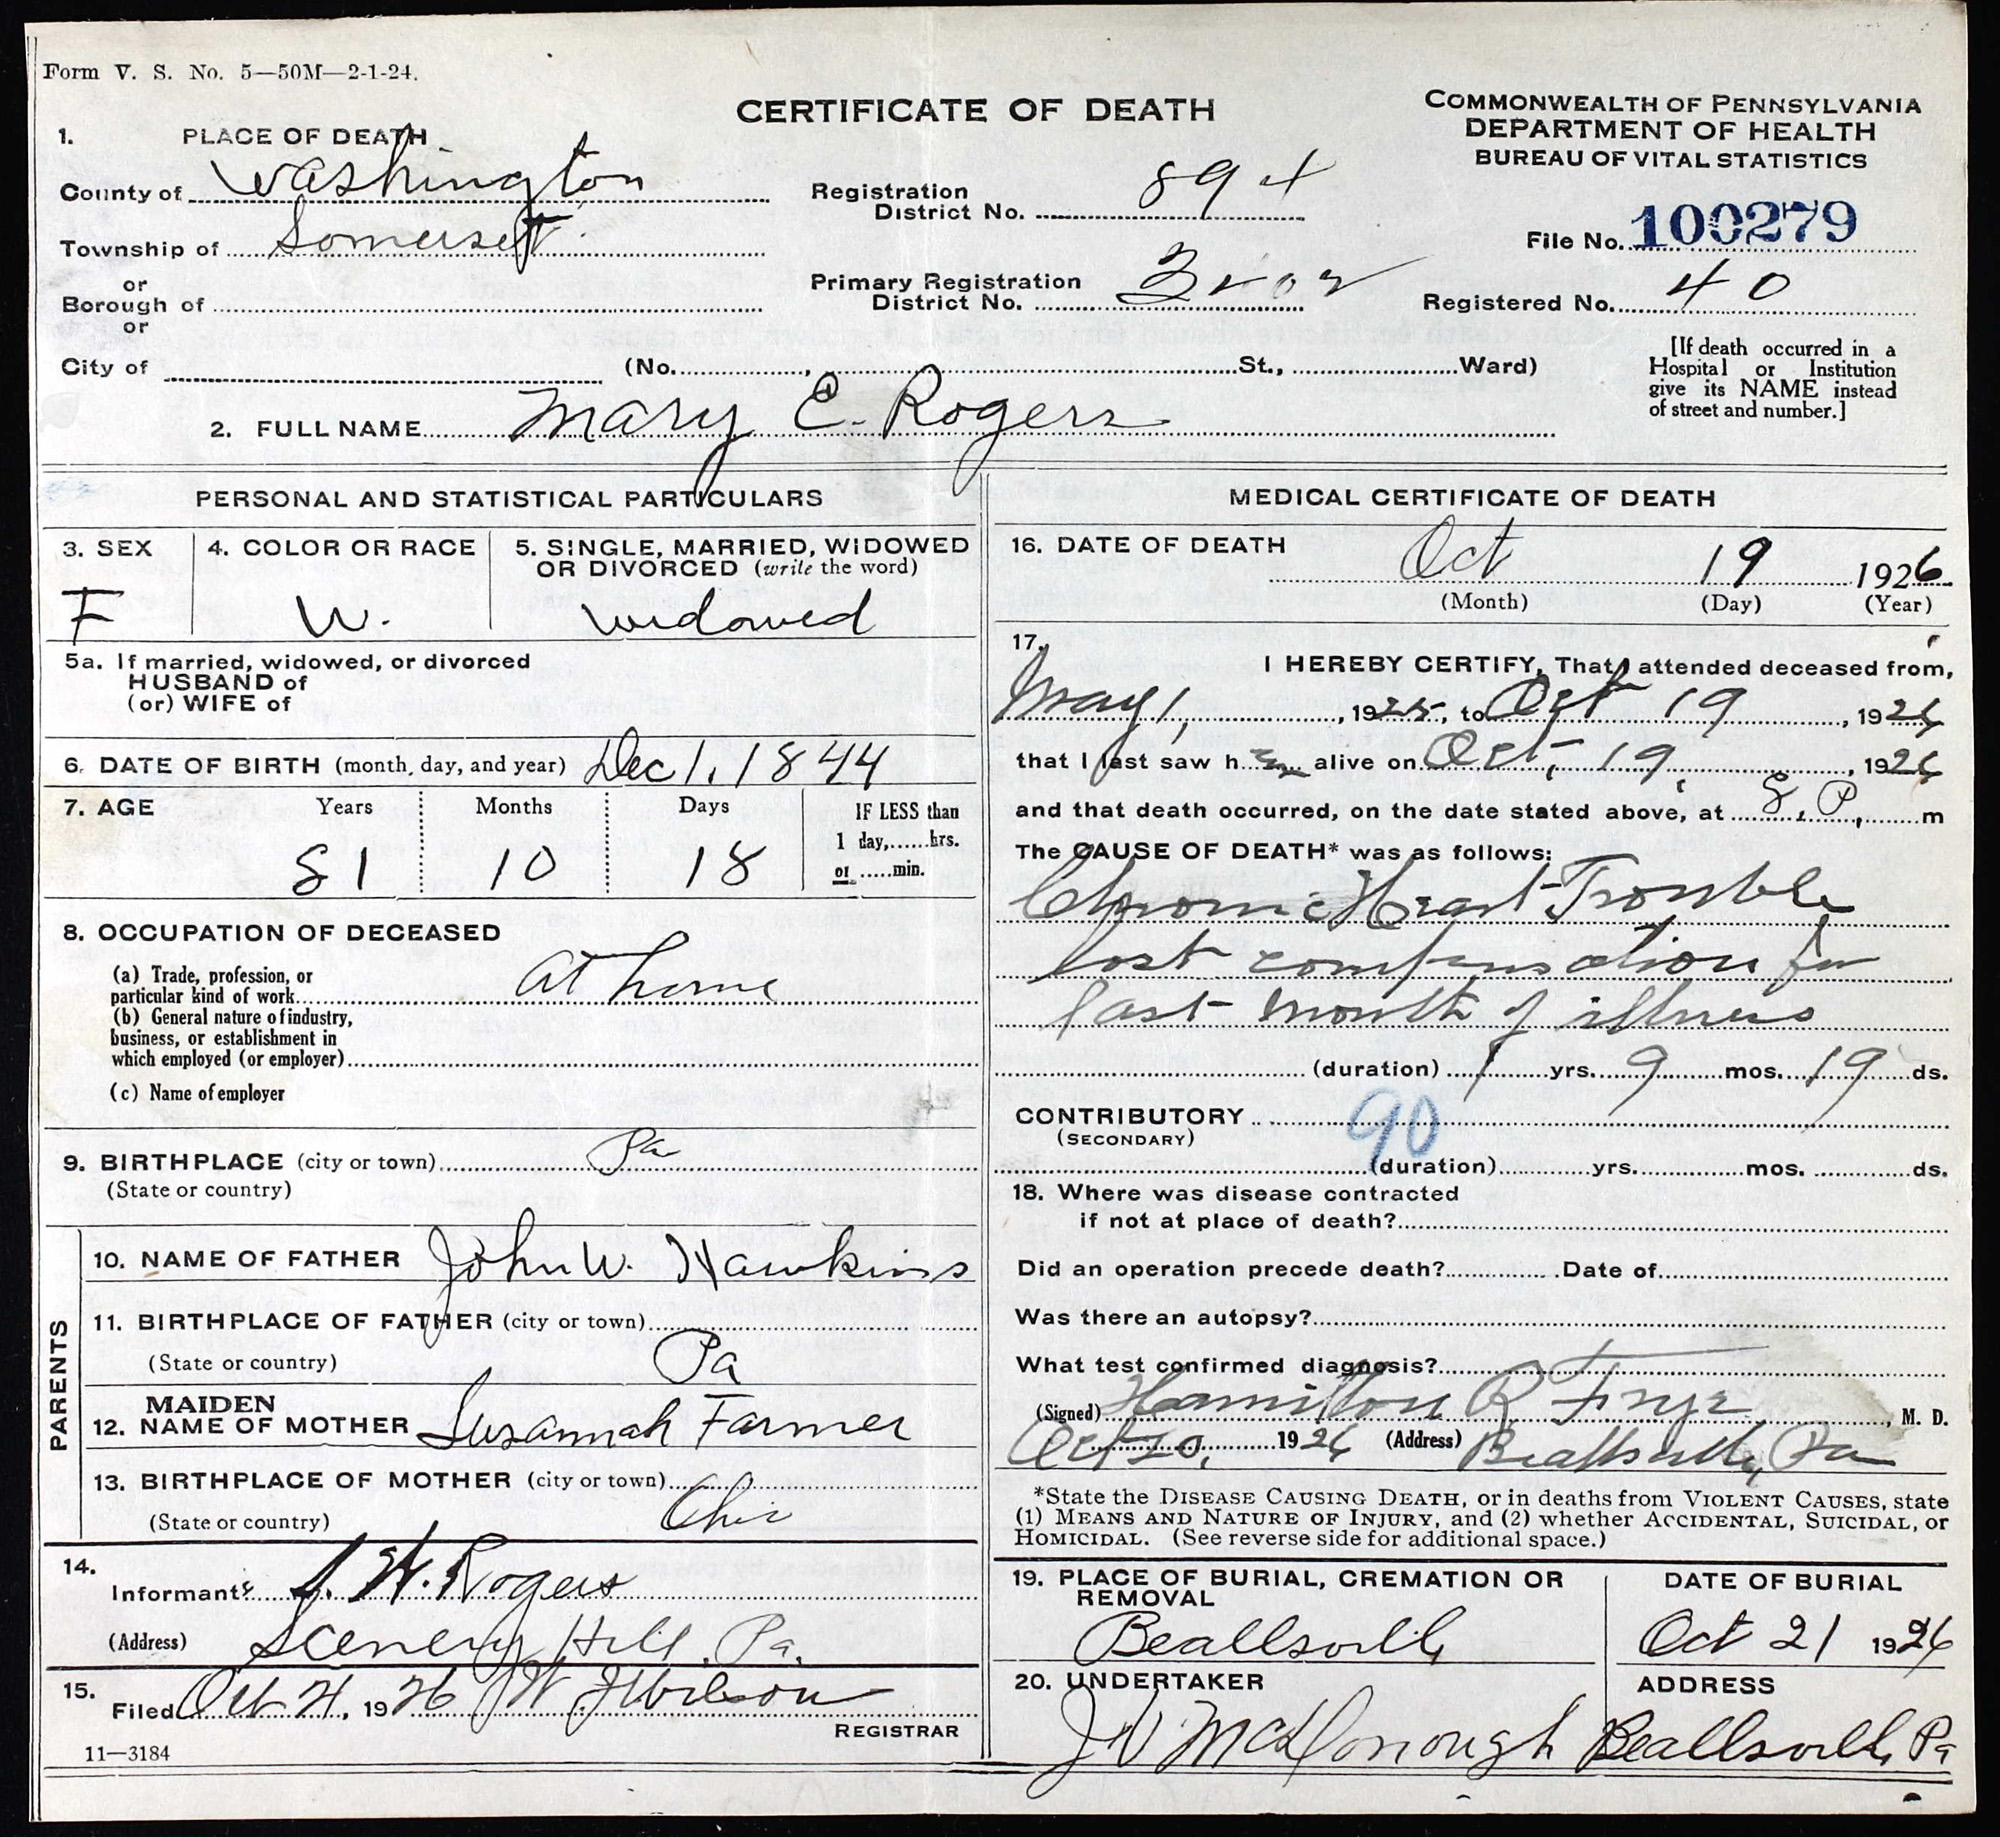 Form V. S. No. 5—50M—2-1-24.
CERTIFICATE OF DEATH
COMMONWEALTH OF PENNSYLVANIA
DEPARTMENT OF HEALTH
BUREAU OF VITAL STATISTICS
1. PLACE OF DEATH
County of Washington
Registration District No. 894
File No. 100279
Township of Somerset
or
Borough of
or
Primary Registration District No.
Registered No. 40
City of (No. , St., Ward)
[If death occurred in a
Hospital or Institution
give its NAME instead
of street and number.]
2. FULL NAME Mary E. Rogers
PERSONAL AND STATISTICAL PARTICULARS
3. SEX
F
4. COLOR OR RACE
W.
5. SINGLE, MARRIED, WIDOWED
OR DIVORCED (write the word)
Widowed
5a. If married, widowed, or divorced
HUSBAND of
(or) WIFE of
6. DATE OF BIRTH (month, day, and year) Dec 1, 1844
7. AGE Years Months Days
81 10 18
IF LESS than
1 day,......hrs.
or .....min.
8. OCCUPATION OF DECEASED
(a) Trade, profession, or
particular kind of work At home
(b) General nature of industry,
business, or establishment in
which employed (or employer)
(c) Name of employer
9. BIRTHPLACE (city or town) Pa
(State or country)
PARENTS
10. NAME OF FATHER John W. Hawkins
11. BIRTHPLACE OF FATHER (city or town)
(State or country) Pa
MAIDEN
12. NAME OF MOTHER Susannah Farmer
13. BIRTHPLACE OF MOTHER (city or town)
(State or country) Ohio
14.
Informant J. W. Rogers
(Address) Scenery Hill, Pa.
15.
Filed Oct 21, 1926 W J Wilson
REGISTRAR
11—3184
MEDICAL CERTIFICATE OF DEATH
16. DATE OF DEATH
Oct 19 1926
(Month) (Day) (Year)
17.
I HEREBY CERTIFY, That I attended deceased from,
May 1, 1925, to Oct 19, 1926
that I last saw her alive on Oct, 19, 1926
and that death occurred, on the date stated above, at 8, P, m
The CAUSE OF DEATH* was as follows:
Chronic Heart Trouble
lost compensation for
last month of illness
(duration) 1 yrs. 9 mos. 19 ds.
CONTRIBUTORY 90
(SECONDARY)
(duration) yrs. mos. ds.
18. Where was disease contracted
if not at place of death?
Did an operation precede death? Date of
Was there an autopsy?
What test confirmed diagnosis?
(Signed) Hamilton R Frye, M. D.
Oct 20, 1926 (Address) Beallsville, Pa
*State the DISEASE CAUSING DEATH, or in deaths from VIOLENT CAUSES, state
(1) MEANS AND NATURE OF INJURY, and (2) whether ACCIDENTAL, SUICIDAL, or
HOMICIDAL. (See reverse side for additional space.)
19. PLACE OF BURIAL, CREMATION OR
REMOVAL
Beallsville
DATE OF BURIAL
Oct 21 1926
20. UNDERTAKER
J V McDonough
ADDRESS
Beallsville, Pa